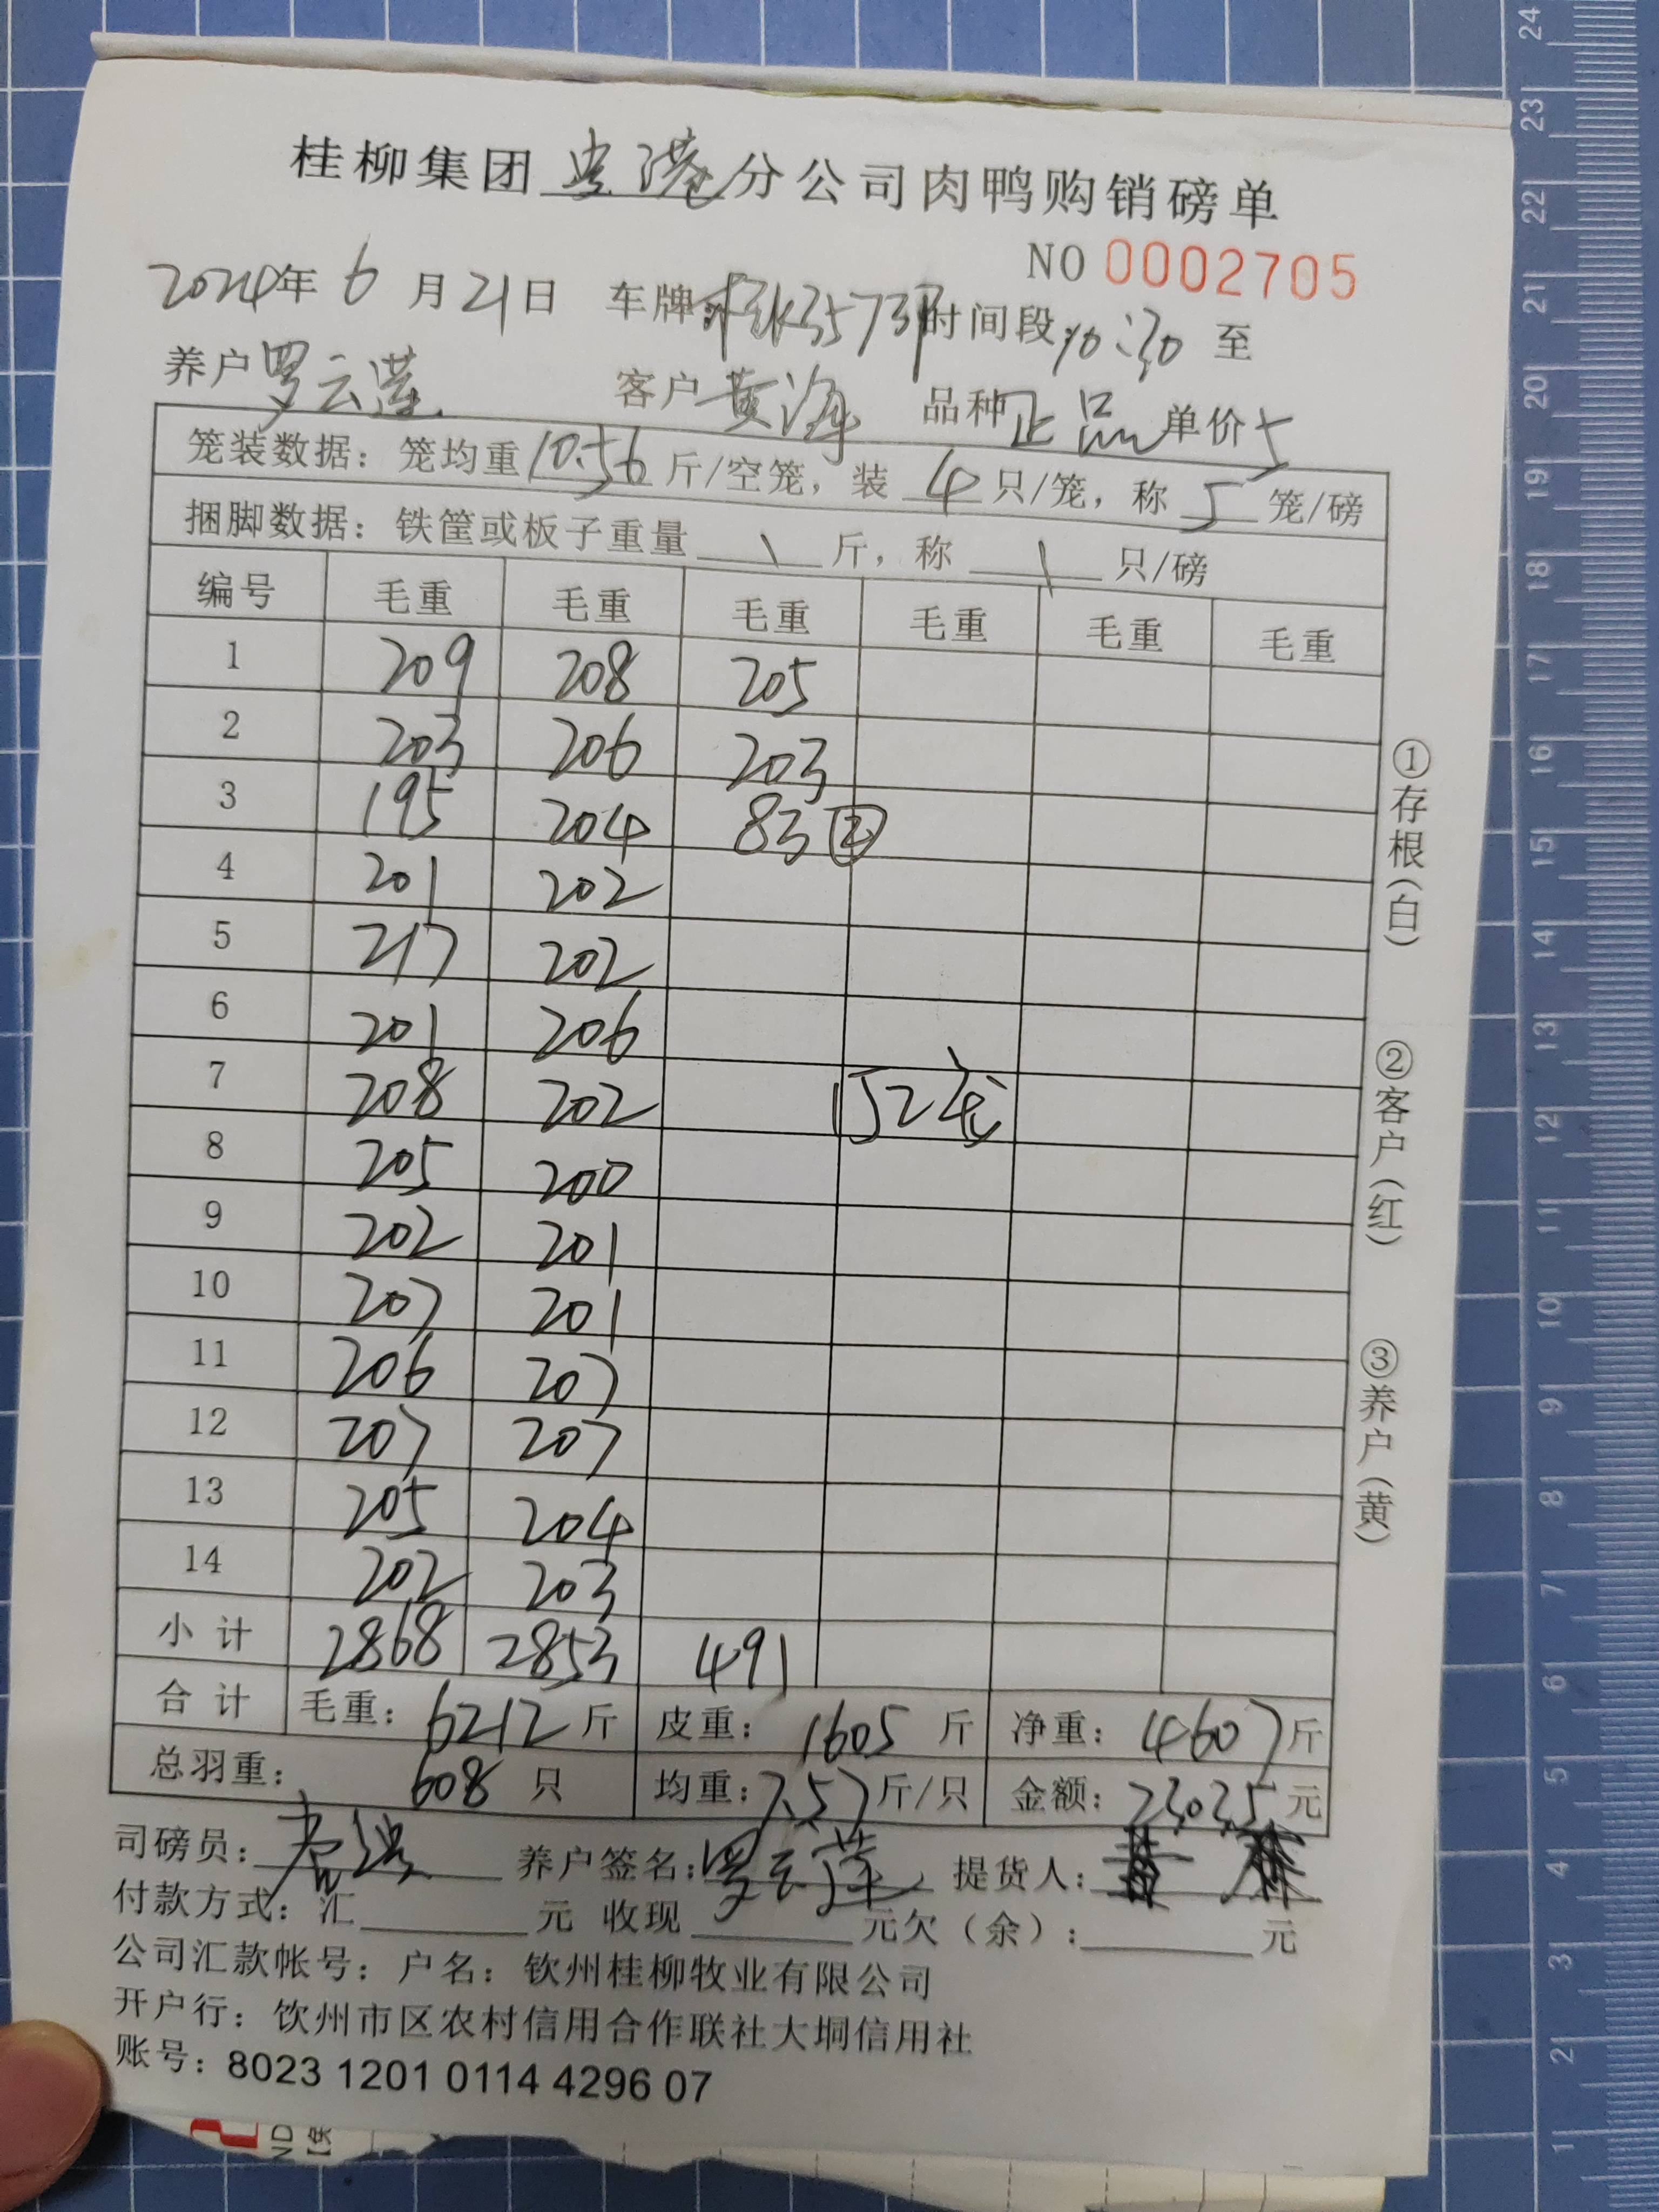 桂柳集团贵港分公司肉鸭购销磅单
NO 0002705
2024年 6 月 21日 车牌: 时间段 10:30 至
养户 罗云莲 客户 黄海 品种 正品 单价 5
笼装数据: 笼均重 10.56 斤/空笼, 装 4 只/笼, 称 5 笼/磅
捆脚数据: 铁筐或板子重量 \ 斤, 称 \ 只/磅
编号 毛重 毛重 毛重 毛重 毛重 毛重
1 209 208 205
2 203 206 203
3 195 204 83 ②
4 201 202
5 217 202
6 201 206
7 208 202 152笼
8 205 200
9 202 201
10 207 201
11 206 207
12 207 207
13 205 204
14 202 203
小计 2868 2853 491
合计 毛重: 6212 斤 皮重: 1605 斤 净重: 4607 斤
总羽重: 608 只 均重: 7.57 斤/只 金额: 23035 元
司磅员: 养户签名: 罗云莲 提货人:
付款方式: 汇 元 收现 元欠(余): 元
公司汇款帐号: 户名: 钦州桂柳牧业有限公司
开户行: 饮州市区农村信用合作联社大垌信用社
账号: 8023 1201 0114 4296 07
①存根(白)
②客户(红)
③养户(黄)
24
23
22
21
20
19
18
17
16
15
14
13
12
11
10
9
8
7
6
5
4
3
2
1